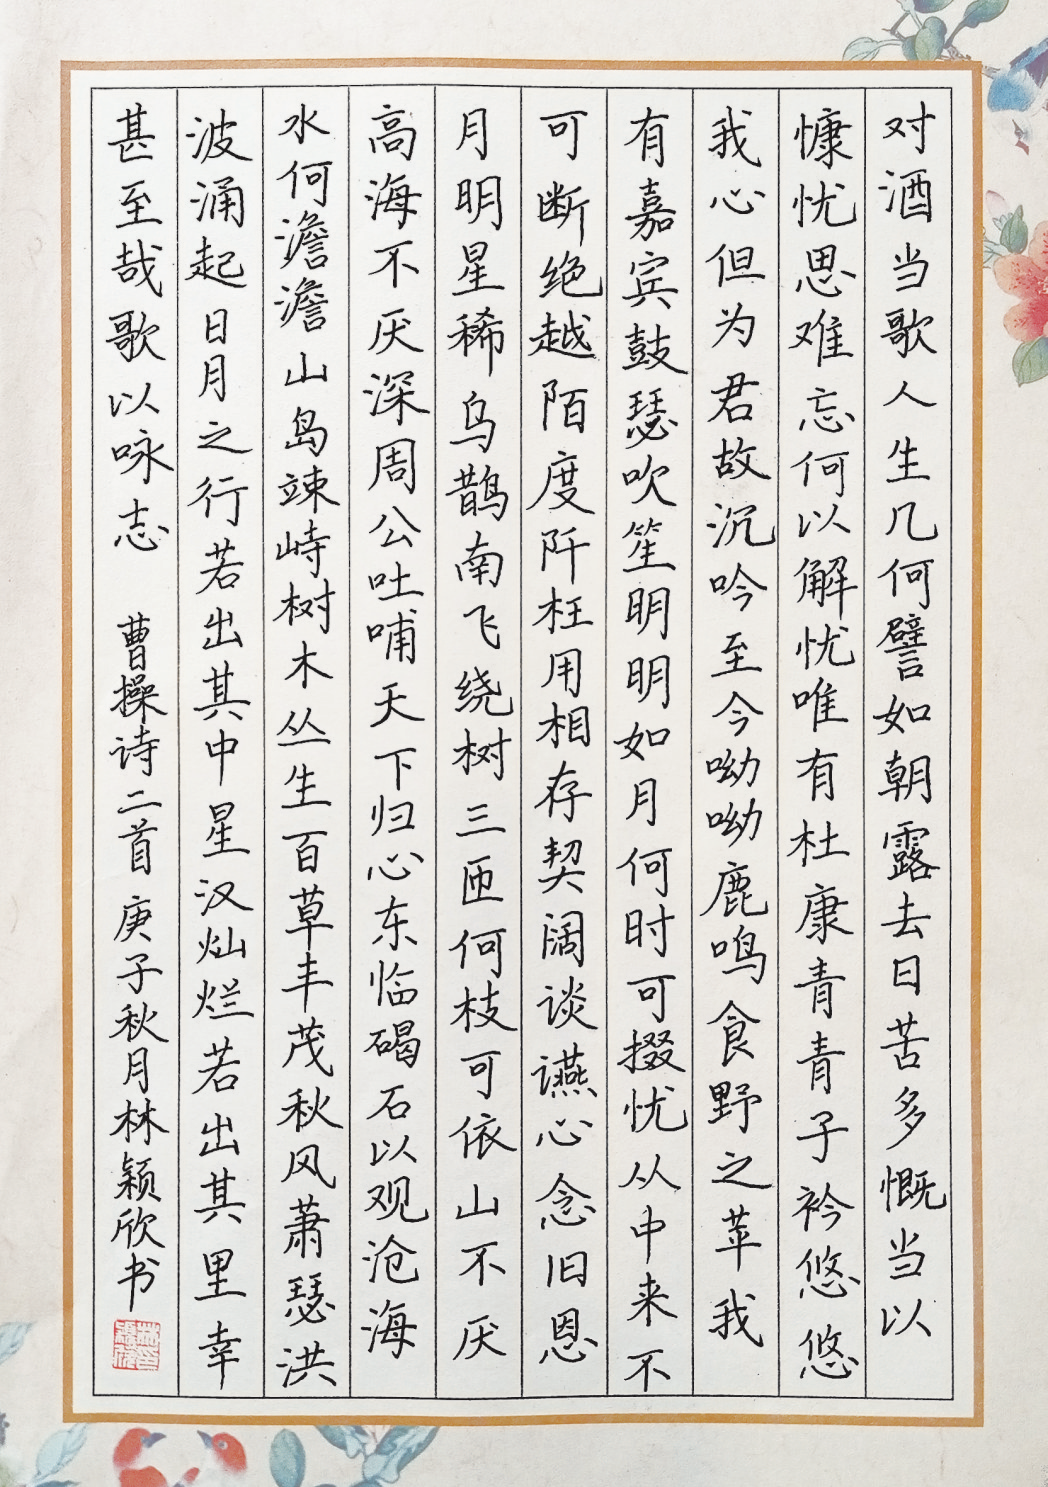 对酒当歌人生几何譬如朝露去日苦多慨当以
慷忧思难忘何以解忧唯有杜康青青子衿悠悠
我心但为君故沉吟至今呦呦鹿鸣食野之苹我
有嘉宾鼓瑟吹笙明明如月何时可掇忧从中来不
可断绝越陌度阡枉用相存契阔谈讌心念旧恩
月明星稀乌鹊南飞绕树三匝何枝可依山不厌
高海不厌深周公吐哺天下归心东临碣石以观沧海
水何澹澹山岛竦峙树木丛生百草丰茂秋风萧瑟洪
波涌起日月之行若出其中星汉灿烂若出其里幸
甚至哉歌以咏志 曹操诗二首庚子秋月林颖欣书